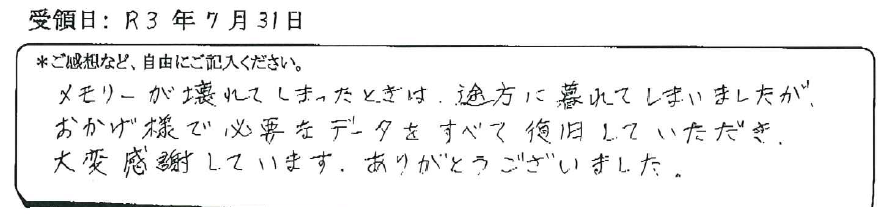 受領日: R3 年 7 月 31 日
*ご感想など、自由にご記入ください。
メモリーが壊れてしまったときは、途方に暮れてしまいましたが、
おかげ様で必要なデータをすべて復旧していただき、
大変感謝しています。ありがとうございました。